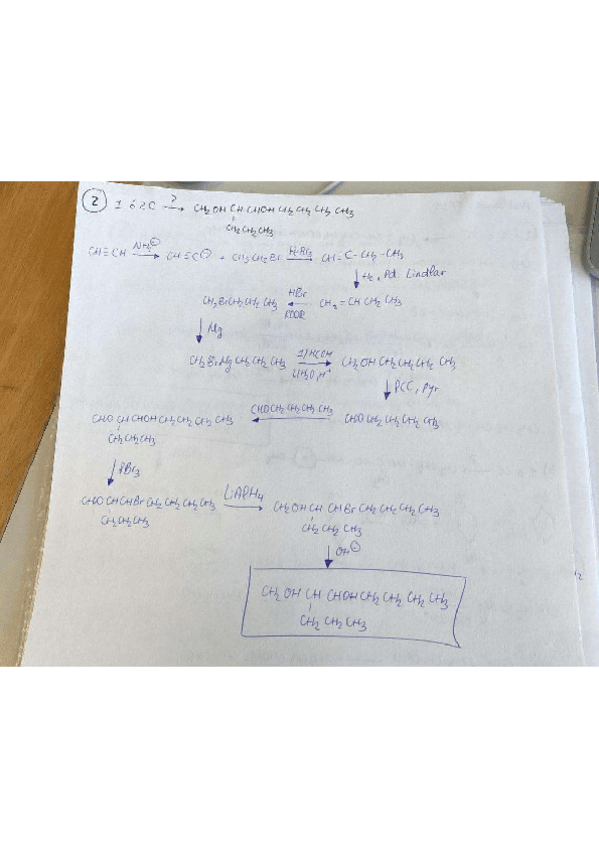 ② 1 ó 2C →? CH₂OH CH CHOH CH₂ CH₂ CH₂ CH₃
CH₂CH₂CH₃
CH≡CH NH₂⊖ → CH≡C⊖ + CH₃CH₂Br → CH≡C-CH₂-CH₃
↓ H₂, Pd Lindlar
CH₂BrCH₂CH₂CH₃ ← HBr ROOR CH₂=CHCH₂CH₃
↓ Mg
CH₂BrMgCH₂CH₂CH₃ → 1) HCOH 2) H₂O, H⁺ CH₂OHCH₂CH₂CH₂CH₃
↓ PCC, Pyr
CHO CH CHOH CH₂ CH₂ CH₂ CH₃ ← CHOCH₂CH₂CH₂CH₃ CHOCH₂CH₂CH₂CH₃
CH₂CH₂CH₃
↓ PBr₃
CHO CH CHBr CH₂CH₂CH₂CH₃ LiAlH₄ → CH₂OH CH CHBr CH₂ CH₂ CH₂ CH₃
CH₂CH₂CH₃ CH₂ CH₂ CH₃
↓ OH⊖
CH₂ OH CH CHOH CH₂ CH₂ CH₂ CH₃
CH₂ CH₂ CH₃